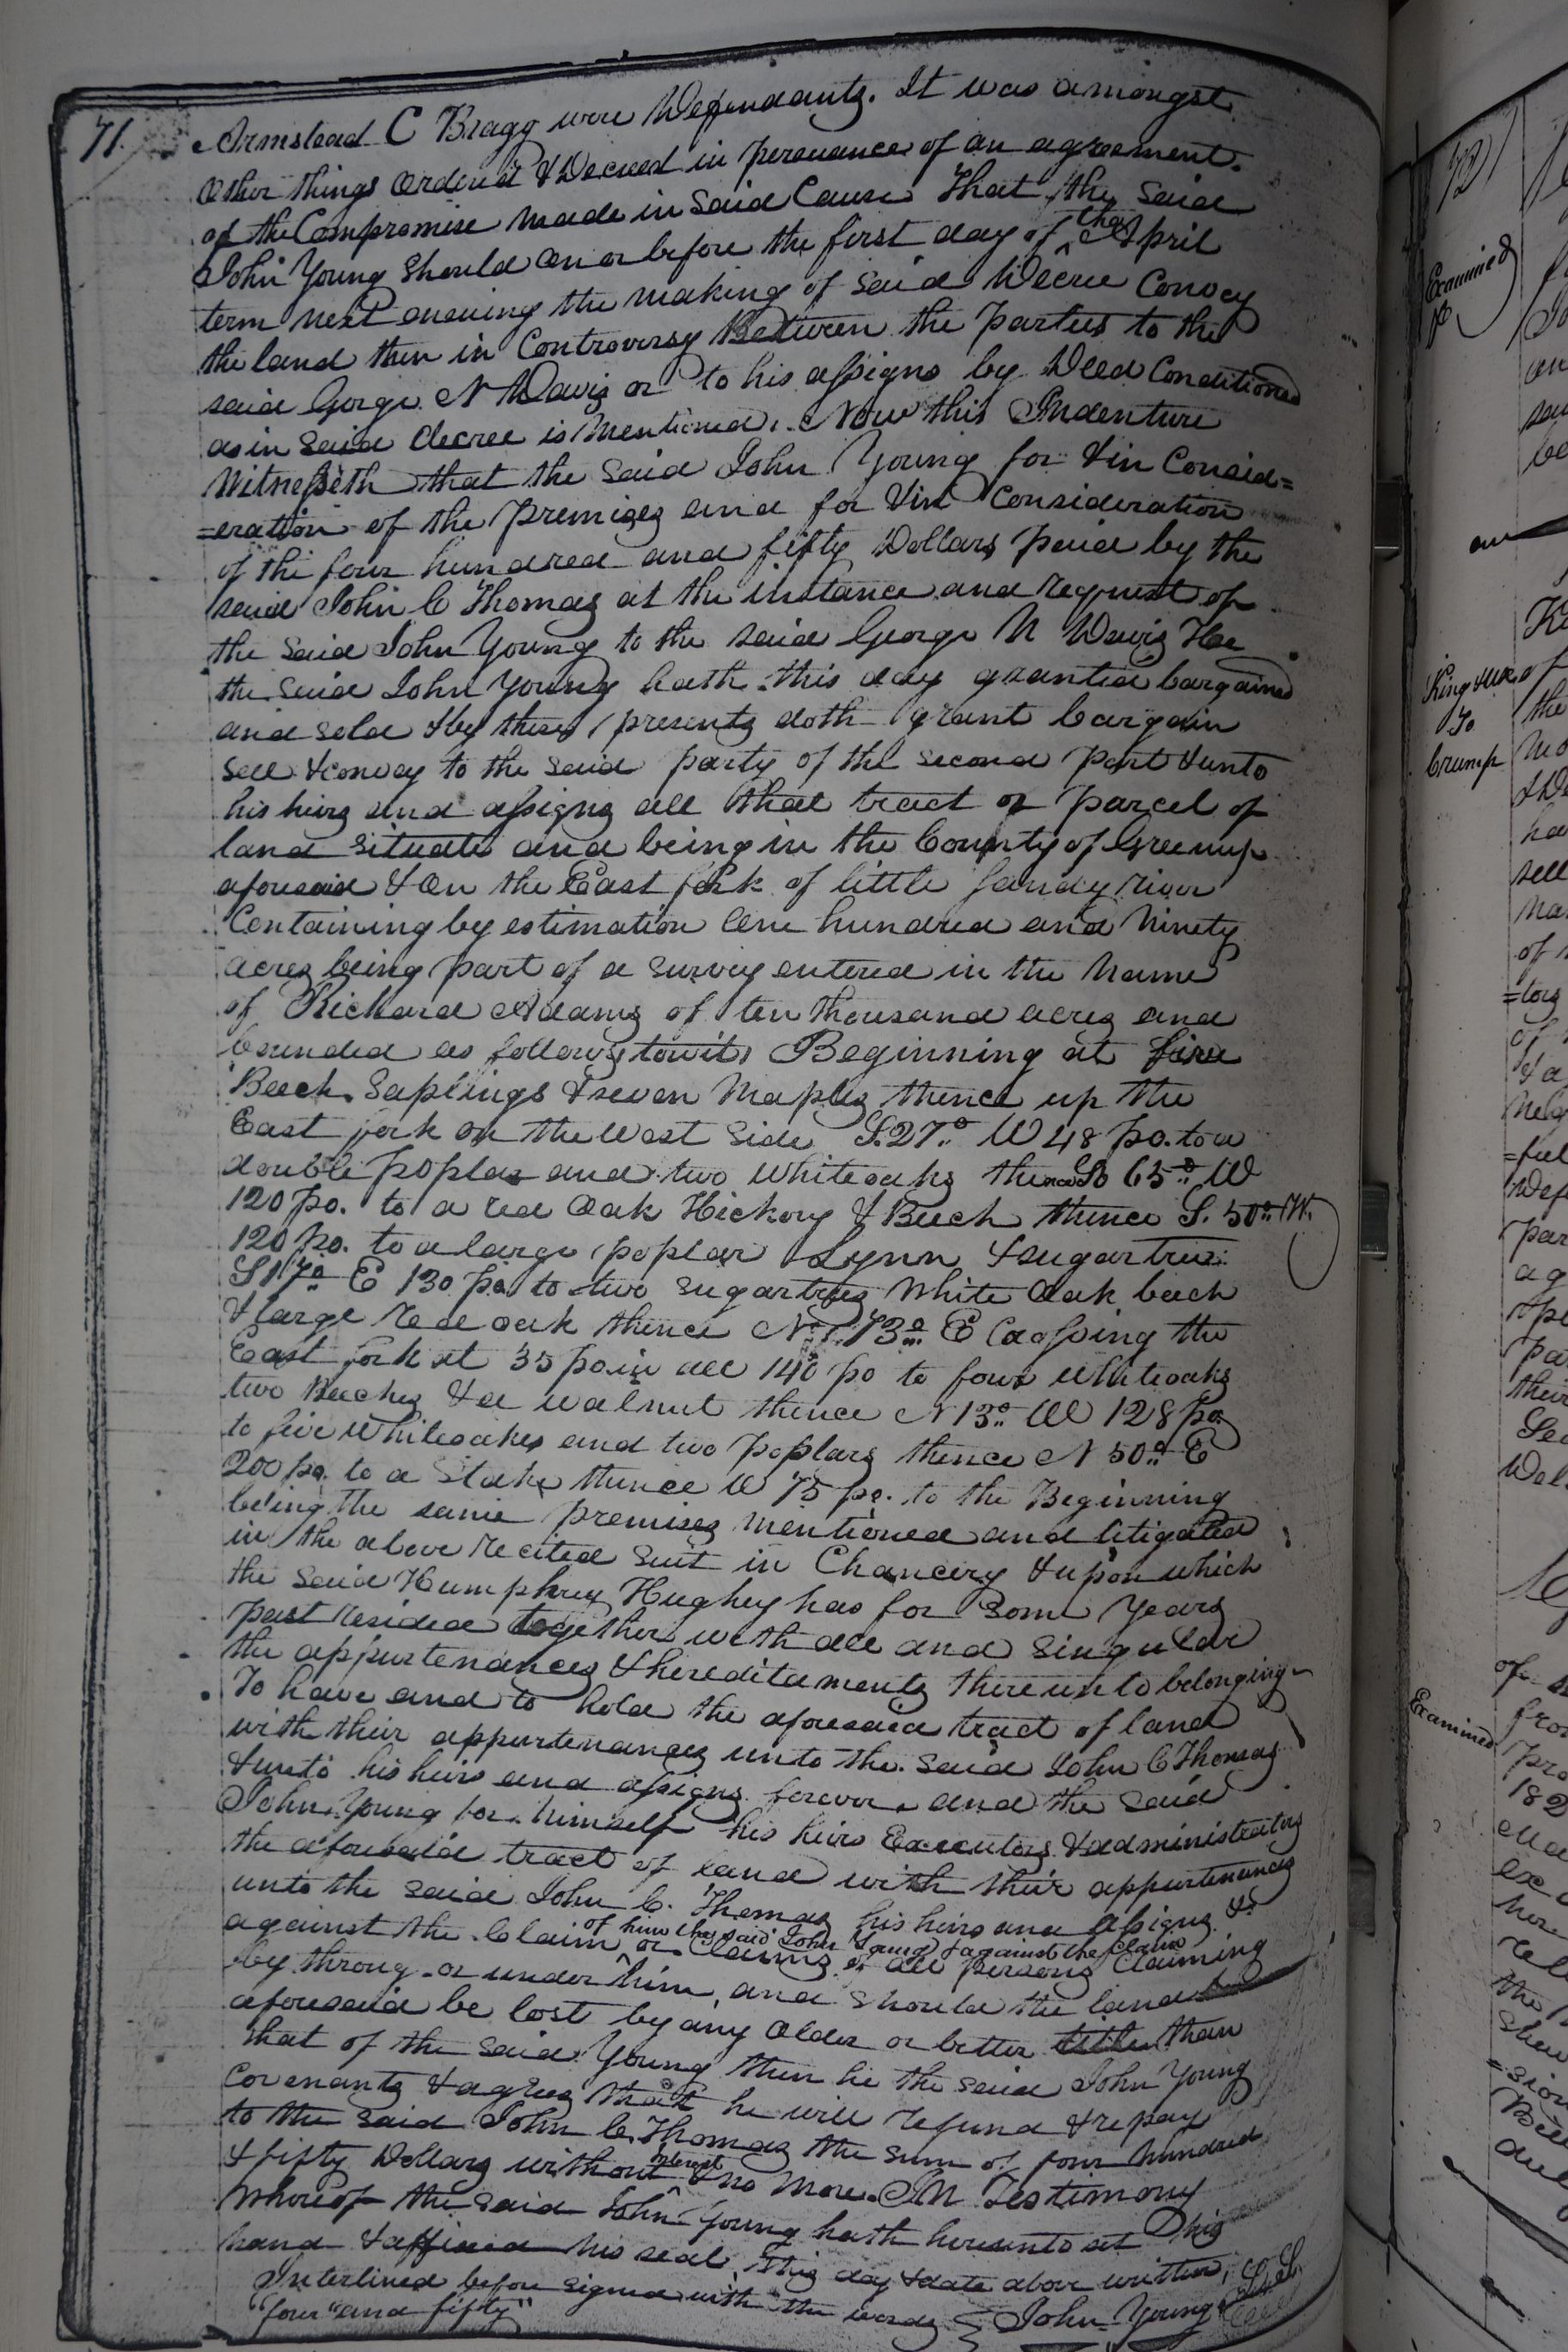 71.
Armstead C Bragg were Defendants. It was amongst
other things ordered & Decreed in pereuance of an agreement
of the Compromise made in said Cause That the said
John Young should on or before the first day of the April
term next ensuing the making of said Decree Convey
the land then in Controversy Between the Parties to the
said Gorge N Davis or to his assigns by Deed Conditioned
as in said decree is Mentioned. Now this Indenture
Witnesseth that the said John Young for & in Consid=
=eration of the premises and for & in Consideration
of the four hundred and fifty Dollars paid by the
said John C Thomas at the instance and request of
the said John Young to the said George N Davis He
the said John Young hath this day granted bargained
and sold & by these presents doth grant bargain
sell & convey to the said party of the second Part & unto
his heirs and assigns all that tract or parcel of
land situate and being in the County of Greenup
aforesaid & on the East fork of little Sandy river
Containing by estimation one hundred and ninety
acres being part of a survey entered in the name
of Richard Adams of ten thousand acres and
bounded as follows towit, Beginning at five
Beech Saplings & seven Maples thence up the
East fork on the West side S. 27° W 48 po. to a
double poplar and two Whiteoaks thence So 65° W
120 po. to a red Oak Hickory & Beech thence S. 50° W.
120 po. to a large poplar Lynn & sugartree
S 17° E 130 po. to two sugartrees White Oak beech
& large red oak thence N. 73° E Crossing the
East fork at 35 po. in all 140 po to four Whiteoaks
two Beeches & a walnut thence N 13° W 128 po
to five Whiteoakes and two poplars thence N 50° E
200 po. to a Stake thence W 75 po. to the Beginning
being the same premises mentioned and litigated
in the above recited suit in Chancery & upon which
the said Humphrey Hughey has for some years
past resided together with all and singular
the appurtenances & hereditaments thereunto belonging
To have and to hold the aforesaid tract of land
with their appurtenances unto the said John C Thomas
& unto his heirs and assigns forever, and the said
John Young for himself his heirs Executors & administrators
the aforesaid tract of land with their appurtenances
unto the said John C. Thomas his heirs and assigns
of him the said John Young & against the claim
against the Claim or Claims of all persons Claiming
by throug or under him, and should the land
aforesaid be lost by any Older or better title than
that of the said Young then he the said John Young
Covenants & agrees that he will refund & repay
to the said John C. Thomas the sum of four hundred
& fifty Dollars without interest & no more. In Testimony
whereof the said John Young hath hereunto set his
hand & affixed his seal, this day & date above written,
Interlined before signed with the words John Young
"four" and fifty"
Examined
King & ux
To
Crump
Examined